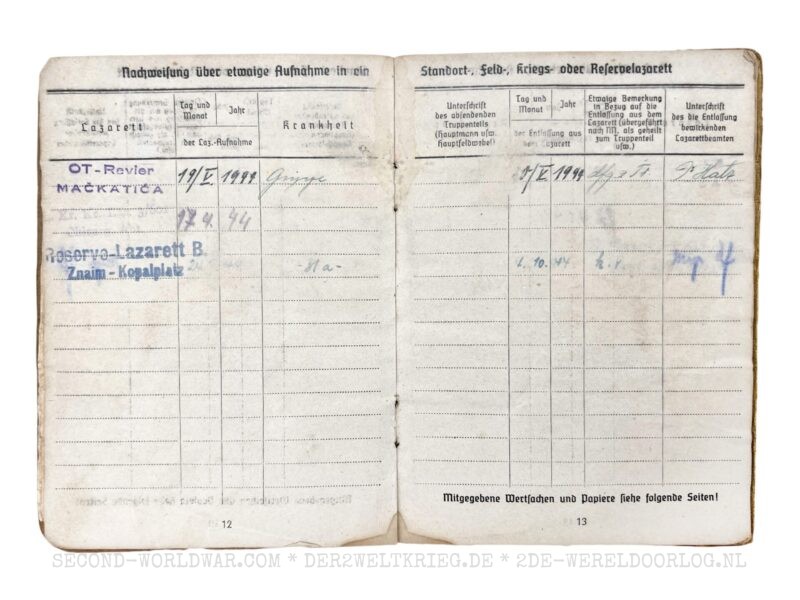 Nachweisung über etwaige Aufnahme in ein
Lazarett
Tag und Monat
Jahr
der Laz.-Aufnahme
Krankheit
OT-Revier
MAČKATICA
19/V. 1944 Grippe
17 4. 44
Reserve-Lazarett B.
Znaim - Kopalplatz
12
Standort-, Feld-, Kriegs- oder Reservelazarett
Unterschrift
des absendenden
Truppenteils
(Hauptmann usw.
Hauptfeldwebel)
Tag und Monat
Jahr
der Entlassung aus dem Lazarett
Etwaige Bemerkung
in Bezug auf die
Entlassung aus dem
Lazarett (übergeführt
nach NN, als geheilt
zum Truppenteil
usw.)
Unterschrift
des die Entlassung
bewirkenden
Lazarettbeamten
1944
10. 44
Mitgegebene Wertsachen und Papiere siehe folgende Seiten!
13
SECOND-WORLDWAR.COM * DER2WELTKRIEG.DE * 2DE-WERELDOORLOG.NL